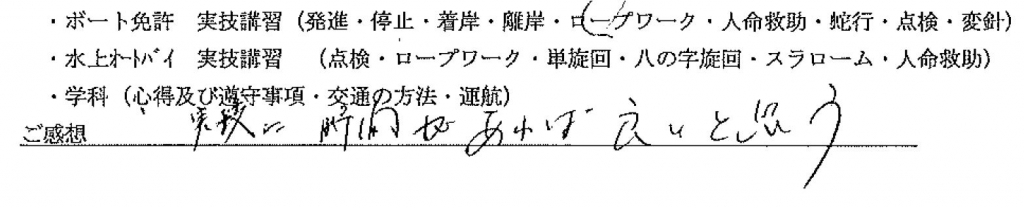 ・ボート免許 実技講習（発進・停止・着岸・離岸・ロープワーク・人命救助・蛇行・点検・変針）
・水上オートバイ 実技講習 （点検・ロープワーク・単旋回・八の字旋回・スラローム・人命救助）
・学科（心得及び遵守事項・交通の方法・運航）
ご感想 実技に時間があれば良いと思う